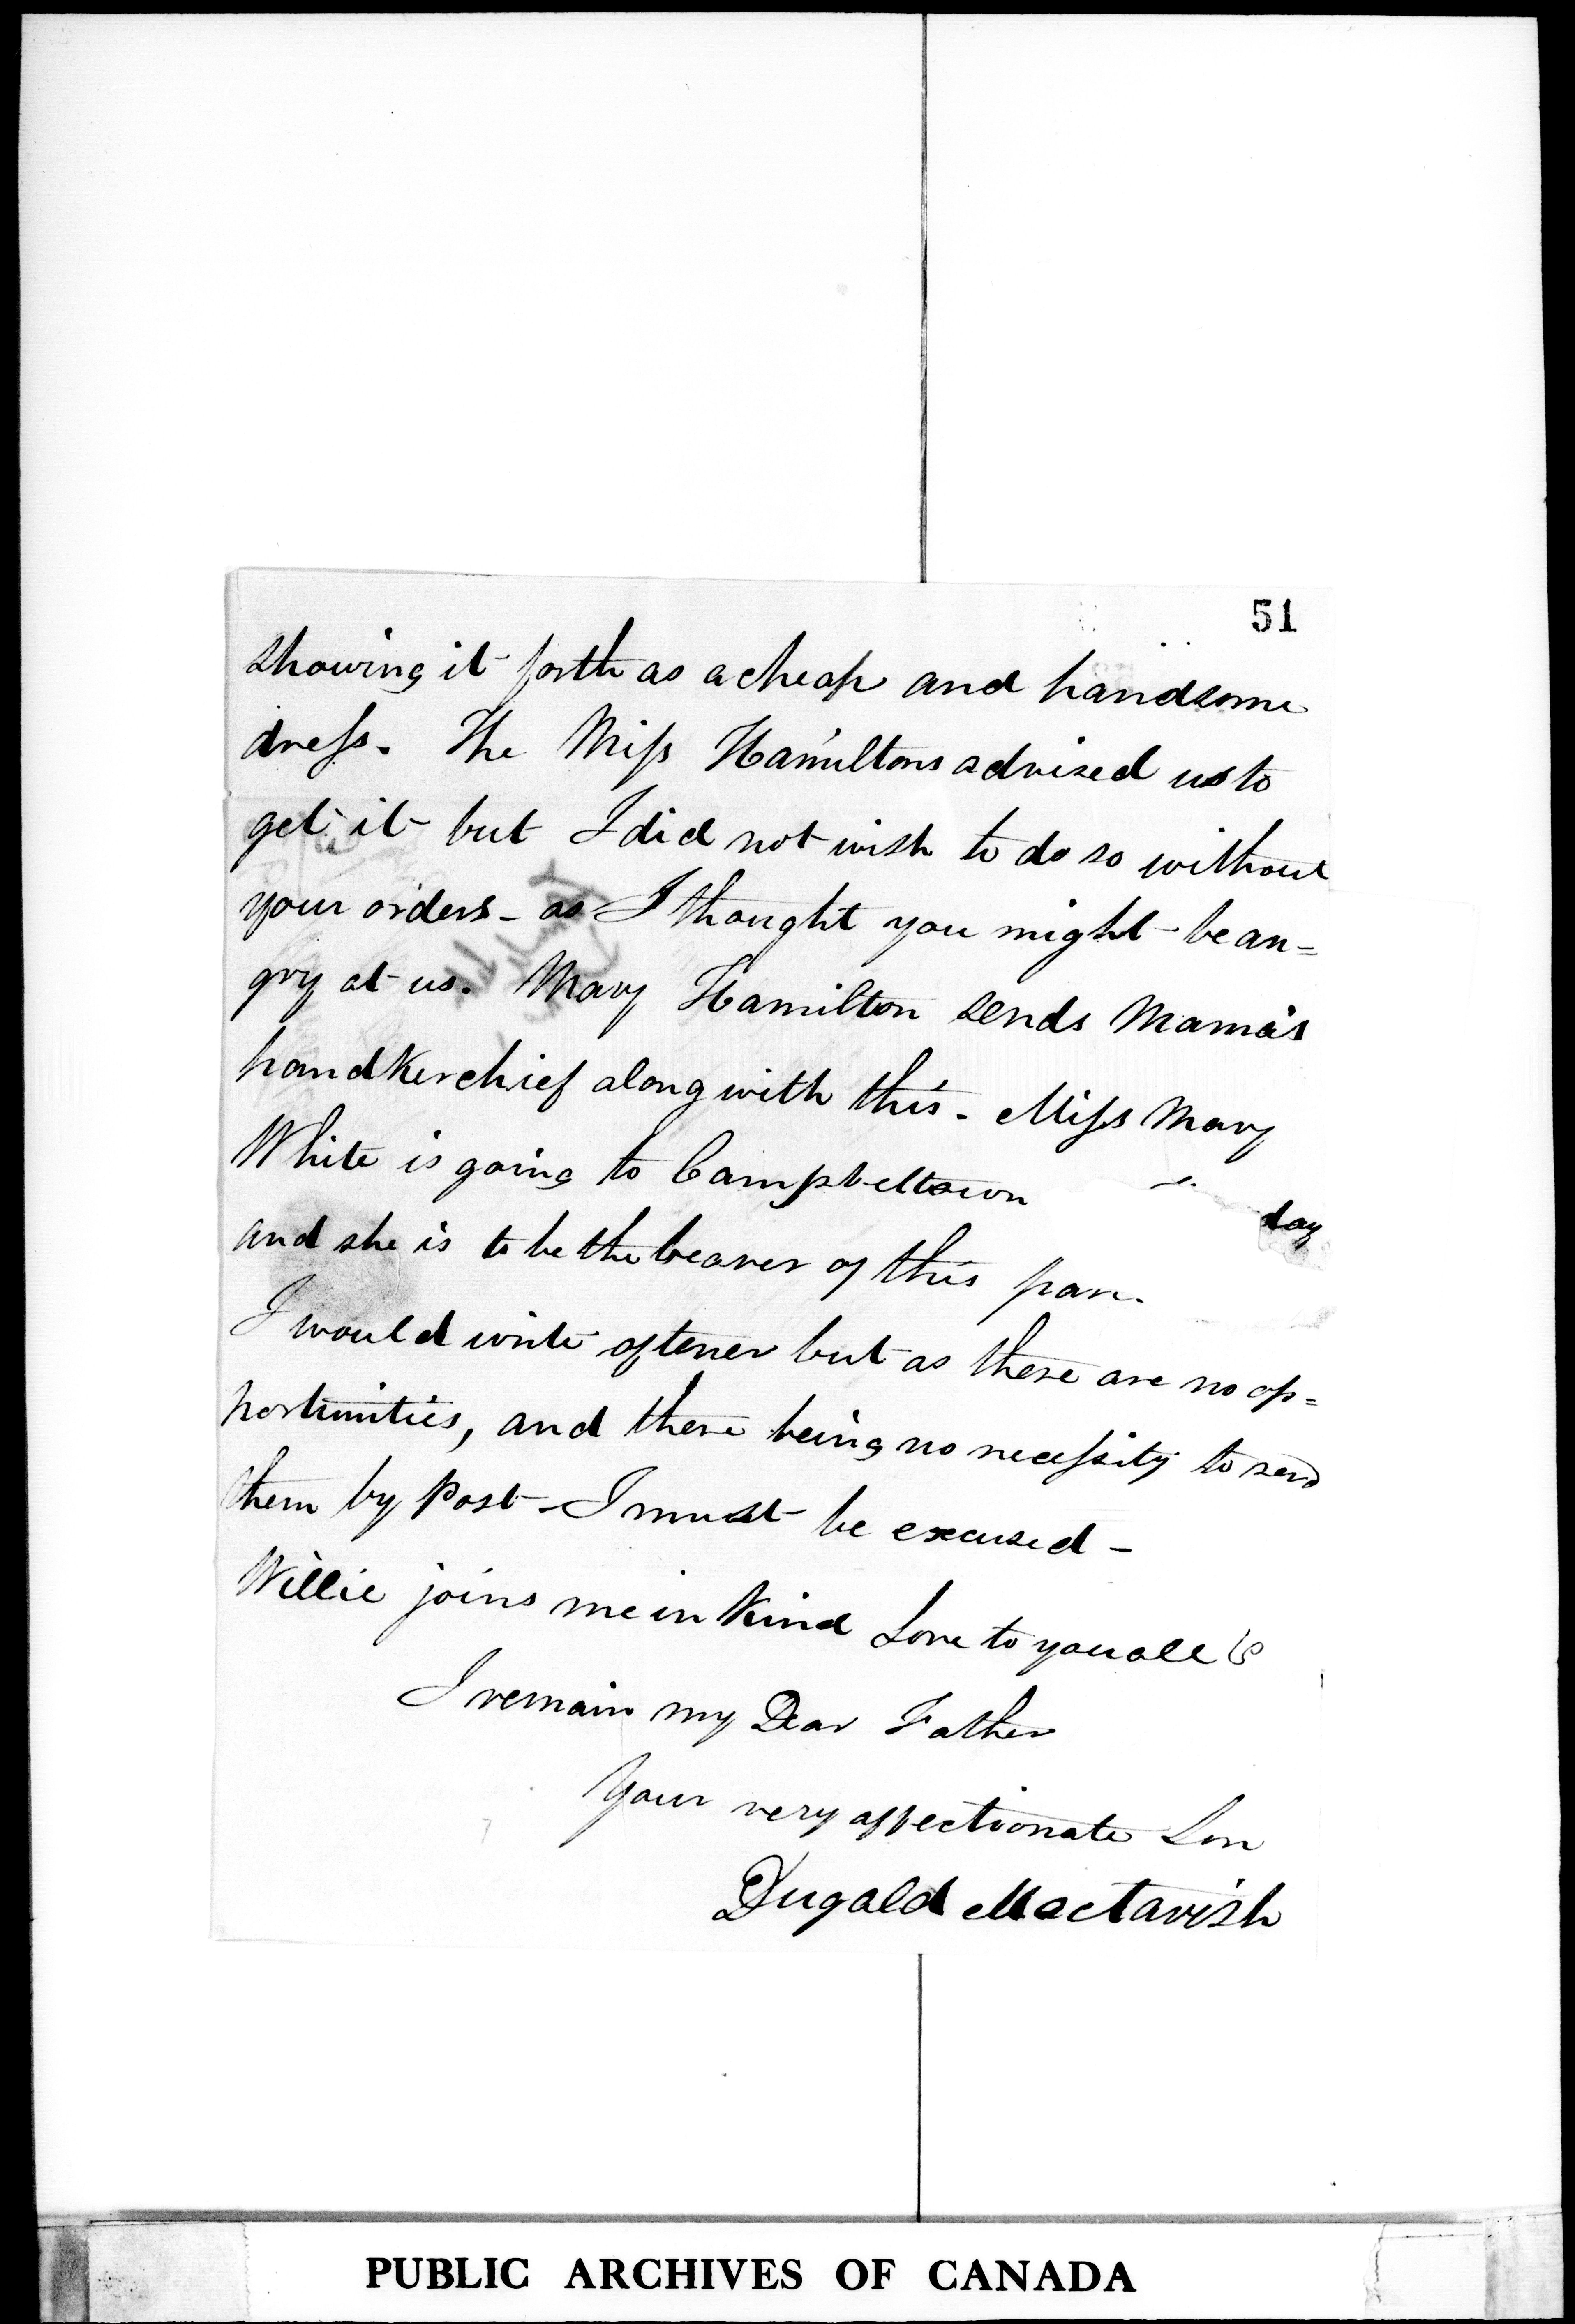 51
showing it forth as a cheap and handsome
dress. The Miss Hamiltons advised us to
get it but I did not wish to do so without
your orders - as I thought you might be an=
gry at us. Mary Hamilton sends Mama's
handkerchief along with this - Miss Mary
White is going to Campbeltown day
and she is to be the bearer of this par
I would write oftener but as there are no op=
portunities, and there being no necessity to send
them by post - I must be excused -
Willie joins me in kind Love to you all &
I remain my Dear Father
Your very affectionate Son
Dugald Mactavish
PUBLIC ARCHIVES OF CANADA